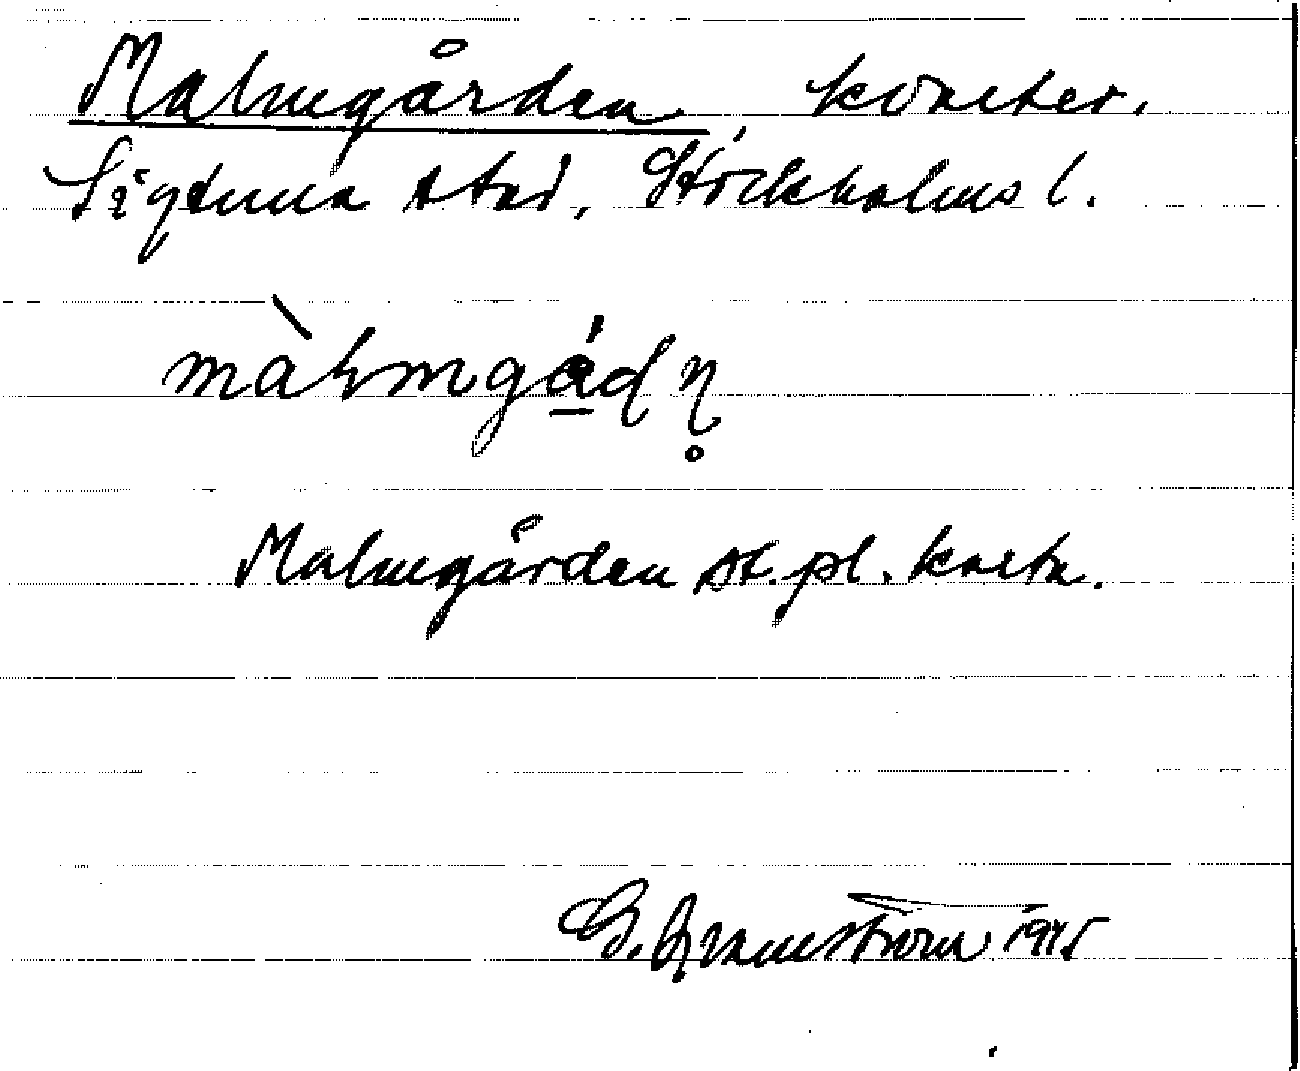 Malmgården, kvarter.
Sigtuna stad, Stockholms l.
màlmgådn̥
Malmgården st. pl. karta.
G. Franzén